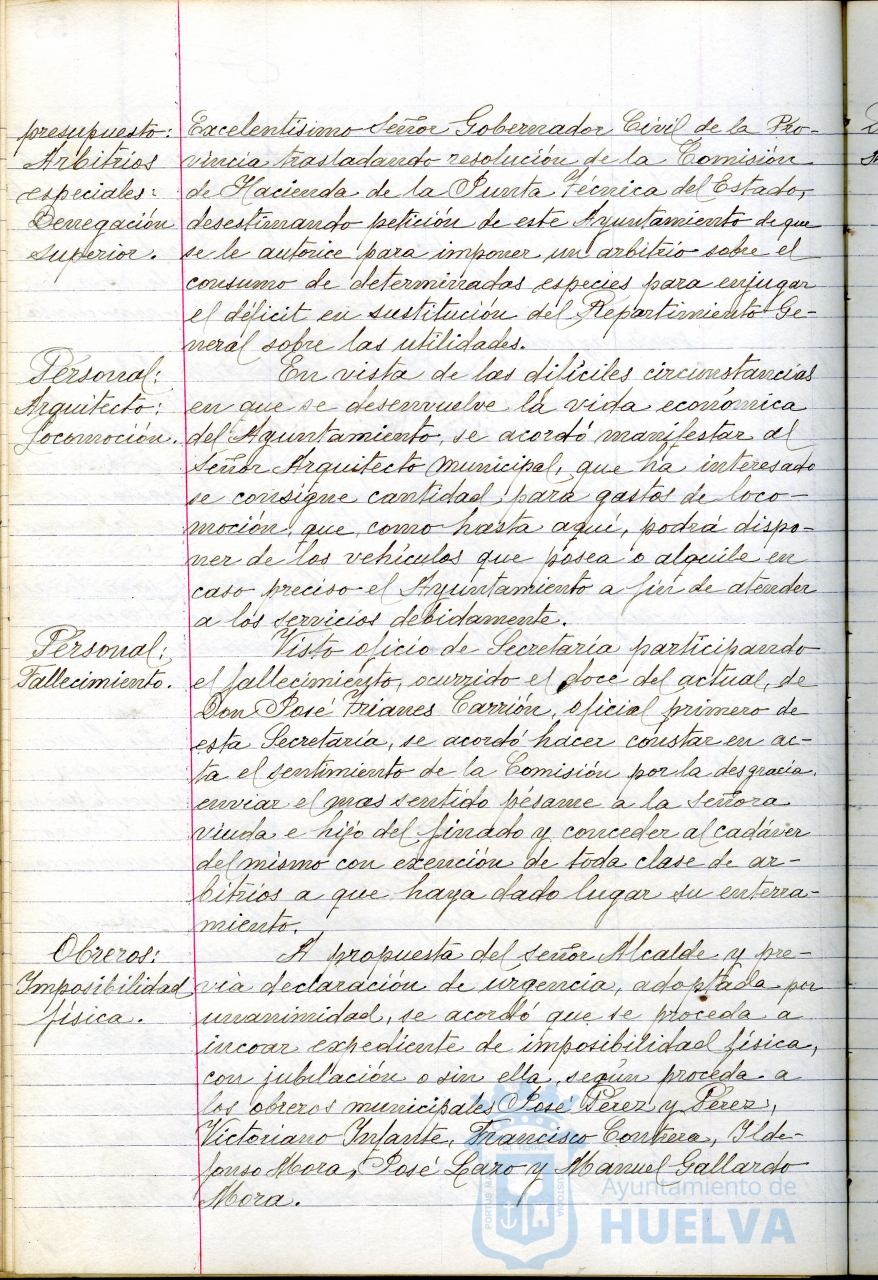 presupuesto:
Arbitrios
especiales:
Denegación
superior.
Excelentísimo Señor Gobernador Civil de la Pro-
vincia trasladando resolución de la Comisión
de Hacienda de la Junta Técnica del Estado,
desestimando petición de este Ayuntamiento de que
se le autorice para imponer un arbitrio sobre el
consumo de determinadas especies para enjugar
el déficit en sustitución del Repartimiento Ge-
neral sobre las utilidades.
Personal:
Arquitecto:
Locomoción.
En vista de las difíciles circunstancias
en que se desenvuelve la vida económica
del Ayuntamiento, se acordó manifestar al
Señor Arquitecto municipal, que ha interesado
se consigne cantidad para gastos de loco-
moción, que, como hasta aquí, podrá dispo-
ner de los vehículos que posea o alquile en
caso preciso el Ayuntamiento a fin de atender
a los servicios debidamente.
Personal:
Fallecimiento.
Visto oficio de Secretaría participando
el fallecimiento, ocurrido el doce del actual, de
Don José Trianes Carrión, oficial primero de
esta Secretaría, se acordó hacer constar en ac-
ta el sentimiento de la Comisión por la desgracia,
enviar el mas sentido pésame a la señora
viuda e hijo del finado y conceder al cadáver
del mismo con exención de toda clase de ar-
bitrios a que haya dado lugar su enterra-
miento.
Obreros:
Imposibilidad
física.
A propuesta del señor Alcalde y pre-
via declaración de urgencia, adoptada por
unanimidad, se acordó que se proceda a
incoar expediente de imposibilidad física,
con jubilación o sin ella, según proceda a
los obreros municipales José Pérez y Pérez,
Victoriano Infante, Francisco Contrera, Ilde-
fonso Mora, José Laro y Manuel Gallardo
Mora.
Ayuntamiento de
HUELVA